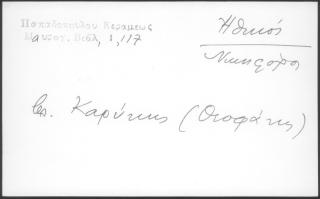 Παπαδοπούλου Κεραμέως
Μαυρογ. Βιβλ, 1, 117
Ἠθικός
Νικηφόρος
βλ. Καρύκης (Θεοφάνης)